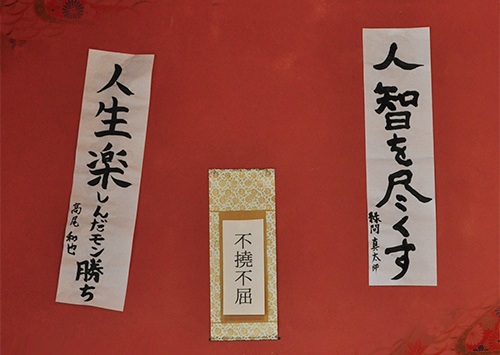 人智を尽くす
緑間 真太郎
不撓不屈
人生楽しんだモン勝ち
高尾